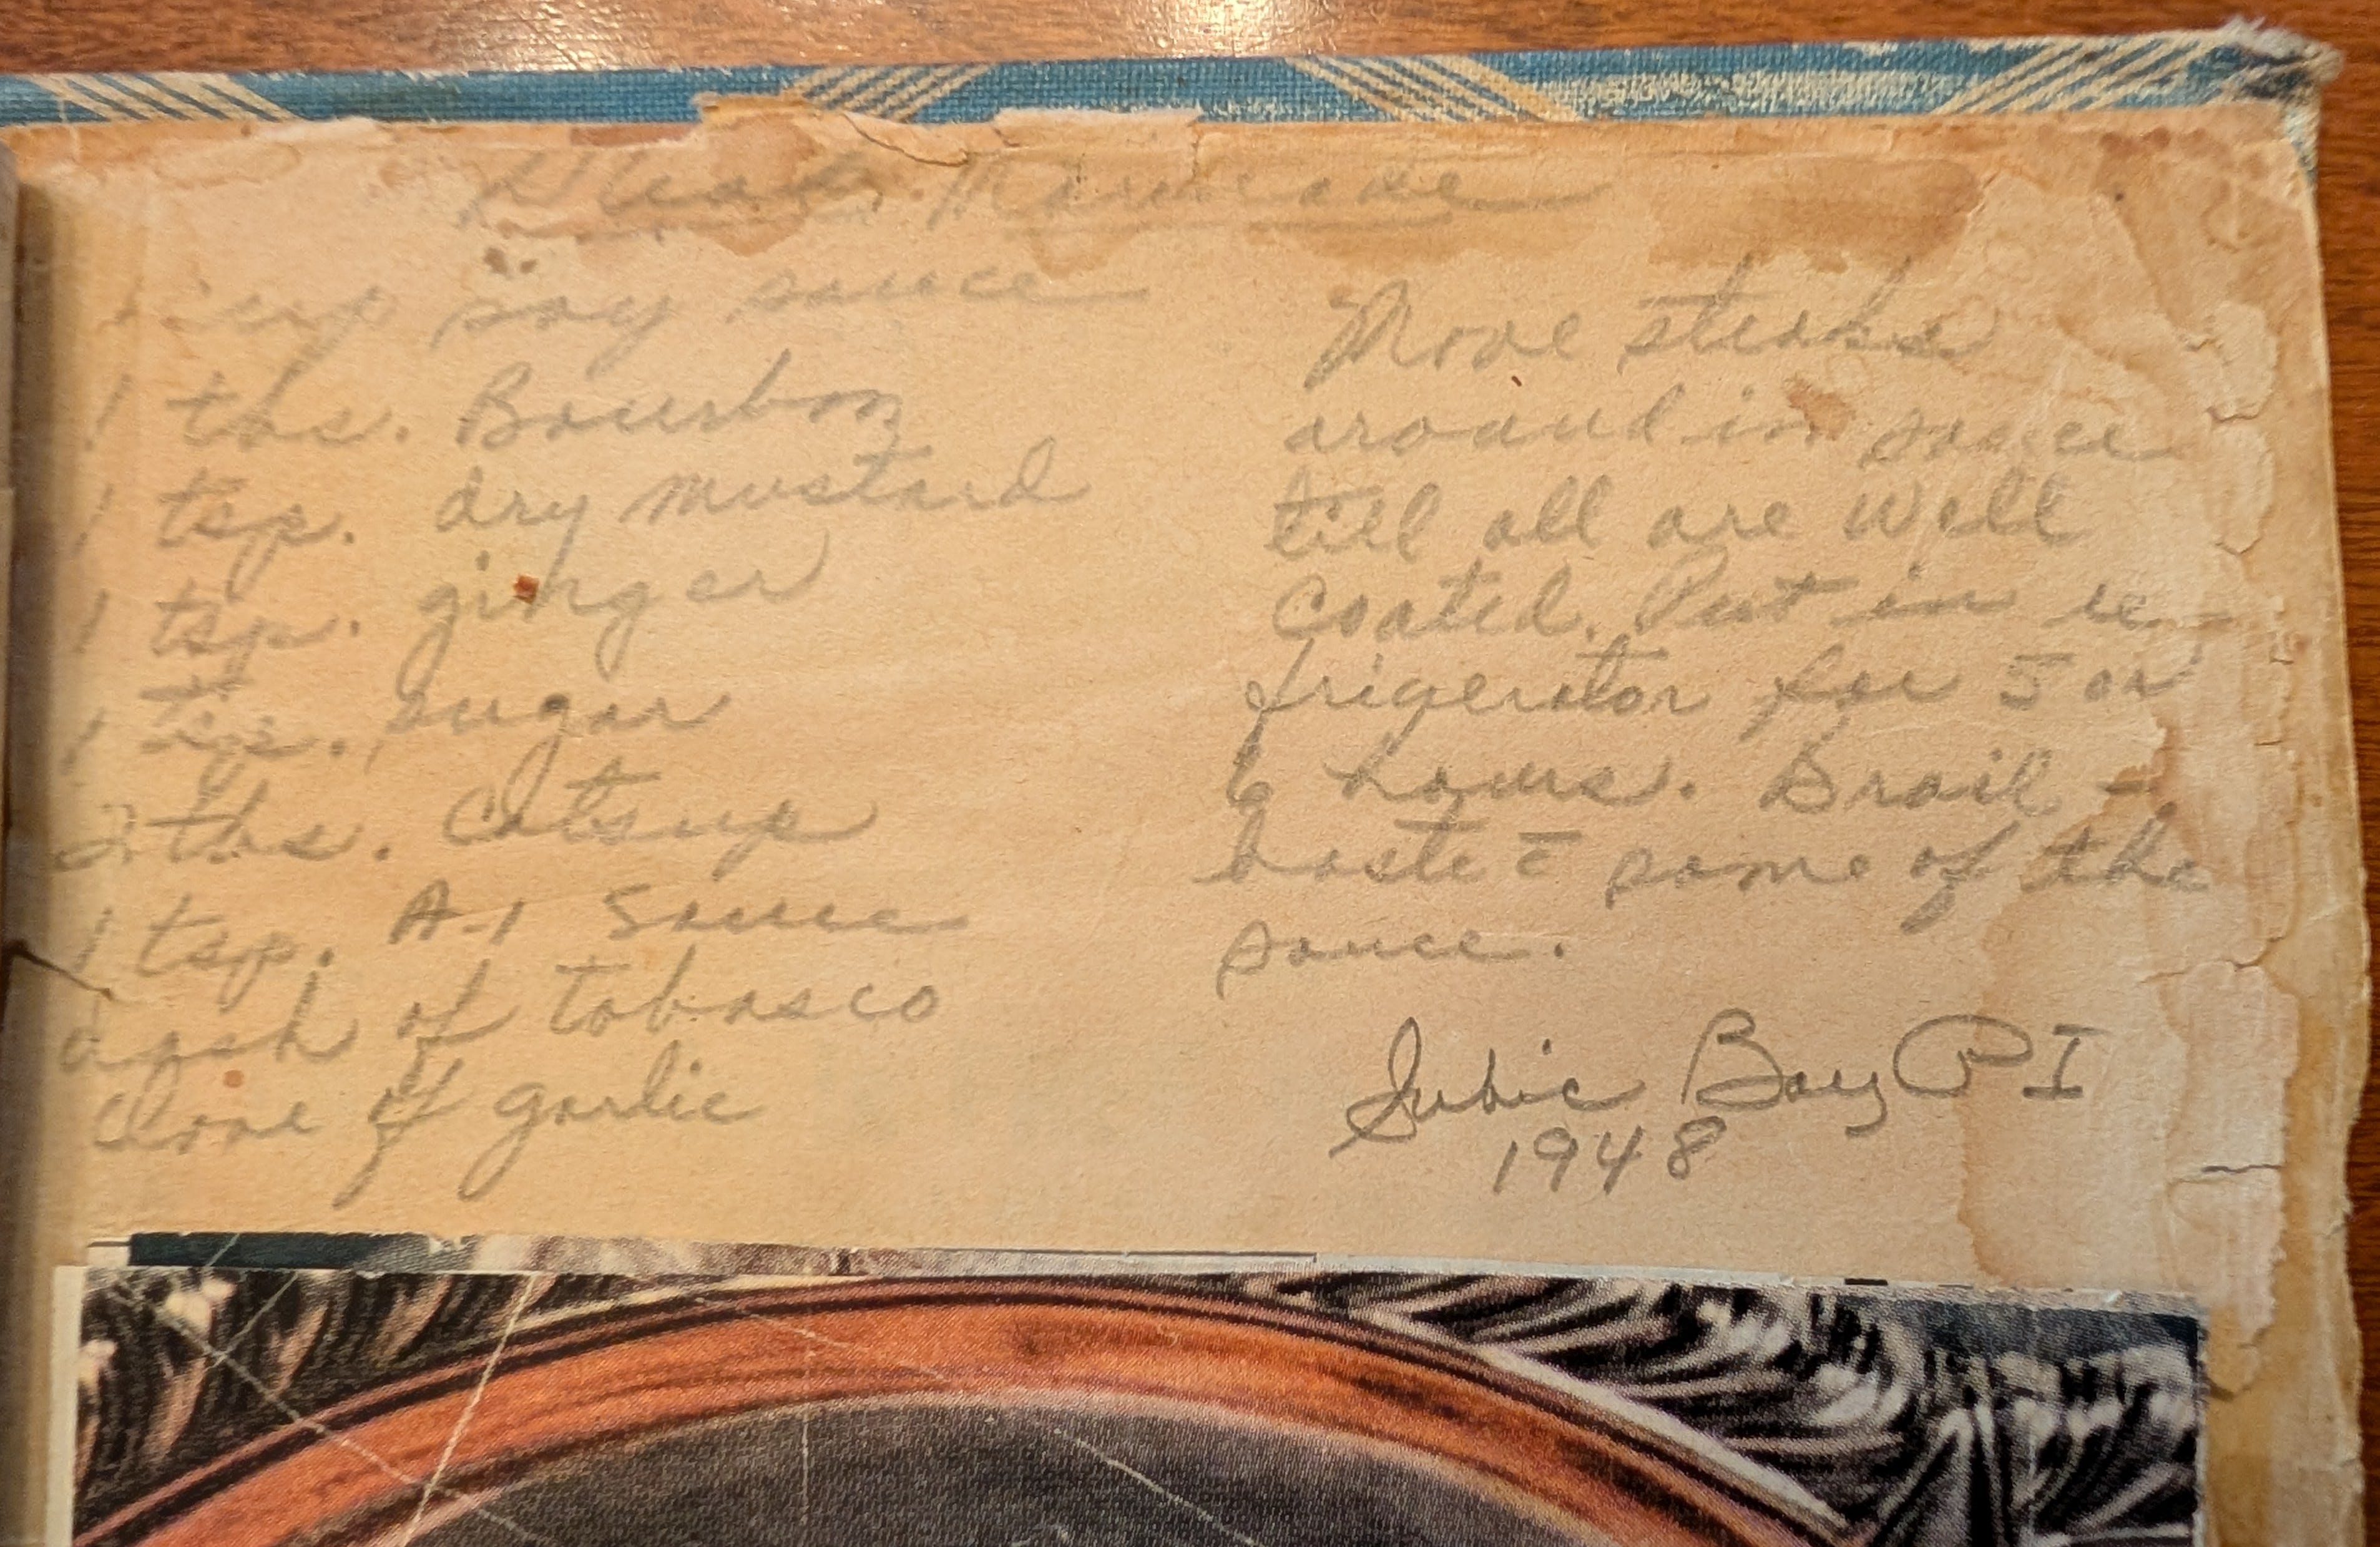 Steak Marinade
1 cup soy sauce
1 tbs. Bourbon
1 tsp. dry mustard
1 tsp. ginger
1 tsp. sugar
2 tbs. Catsup
1 tsp. A-1 Sauce
dash of tobasco
Clove of garlic
Move steaks
around in sauce
till all are well
Coated. Put in re-
frigerator for 5 or
6 hours. Broil -
baste c̄ some of the
sauce.
Subic Bay PI
1948